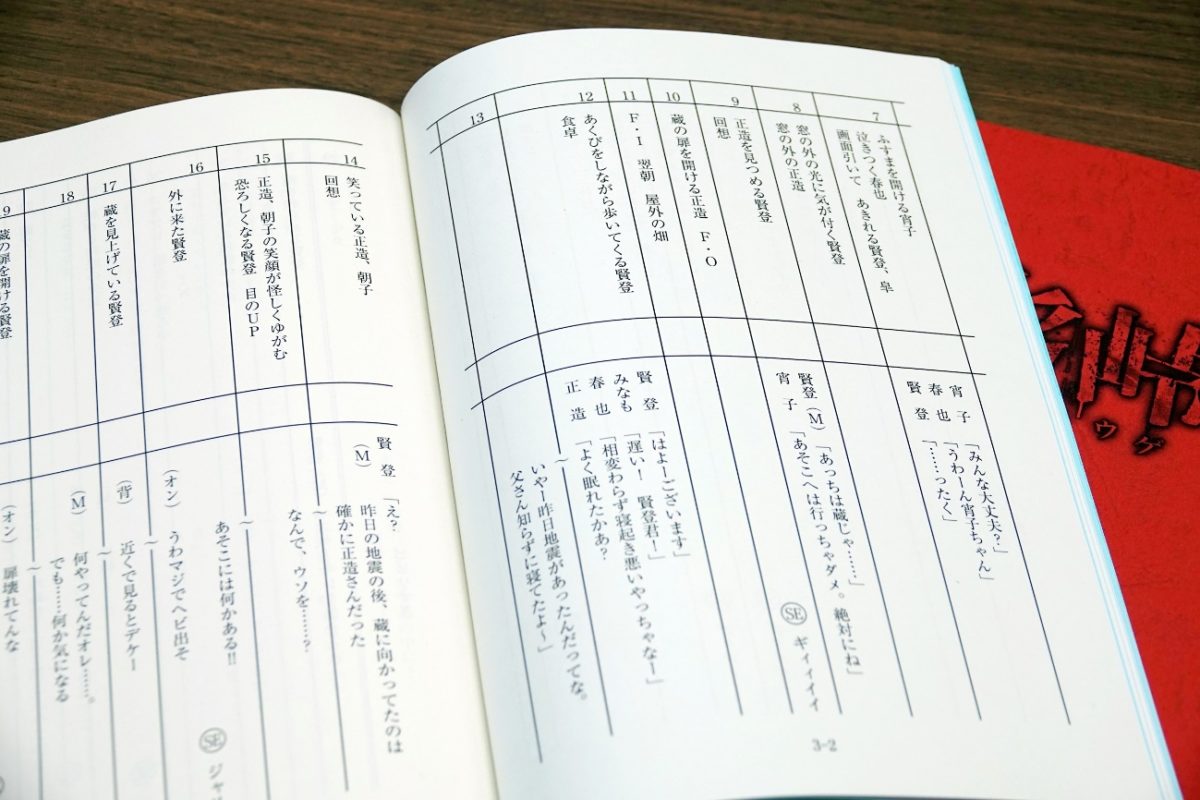 7
ふすまを開ける宵子
泣きつく春也
画面引いて　あきれる賢登、皐
宵子「みんな大丈夫？」
春也「うわーん宵子ちゃん」
賢登「……ったく」
8
窓の外の光に気が付く賢登
窓の外の正造
賢登（M）「あっちは蔵じゃ……」
宵子「あそこへは行っちゃダメ。絶対にね」
9
正造を見つめる賢登
回想
SE ギィィィィ
10
蔵の扉を開ける正造　F・O
11
F・I　翌朝　屋外の畑
12
あくびをしながら歩いてくる賢登
食卓
賢登「はよーございます」
みなも「遅い！　賢登君！」
春也「相変わらず寝起き悪いやっちゃなー」
正造「よく眠れたかあ？
13
〜
いやー昨日地震があったんだってな。
父さん知らずに寝てたよ〜」
3-2
14
笑っている正造、朝子
回想
賢登（M）「え？
昨日の地震の後、蔵に向かってたのは
確かに正造さんだった
15
正造、朝子の笑顔が怪しくゆがむ
恐ろしくなる賢登　目のUP
〜
なんで、ウソを……？
〜
あそこには何かある!!
SE
16
外に来た賢登
（オン）うわマジでヘビ出そ
17
蔵を見上げている賢登
〜
（背）近くで見るとデケー
18
〜
（M）何やってんだオレ……。
でも……何か気になる
19
蔵の扉を開ける賢登
〜
（オン）扉壊れてんな
ウゲ